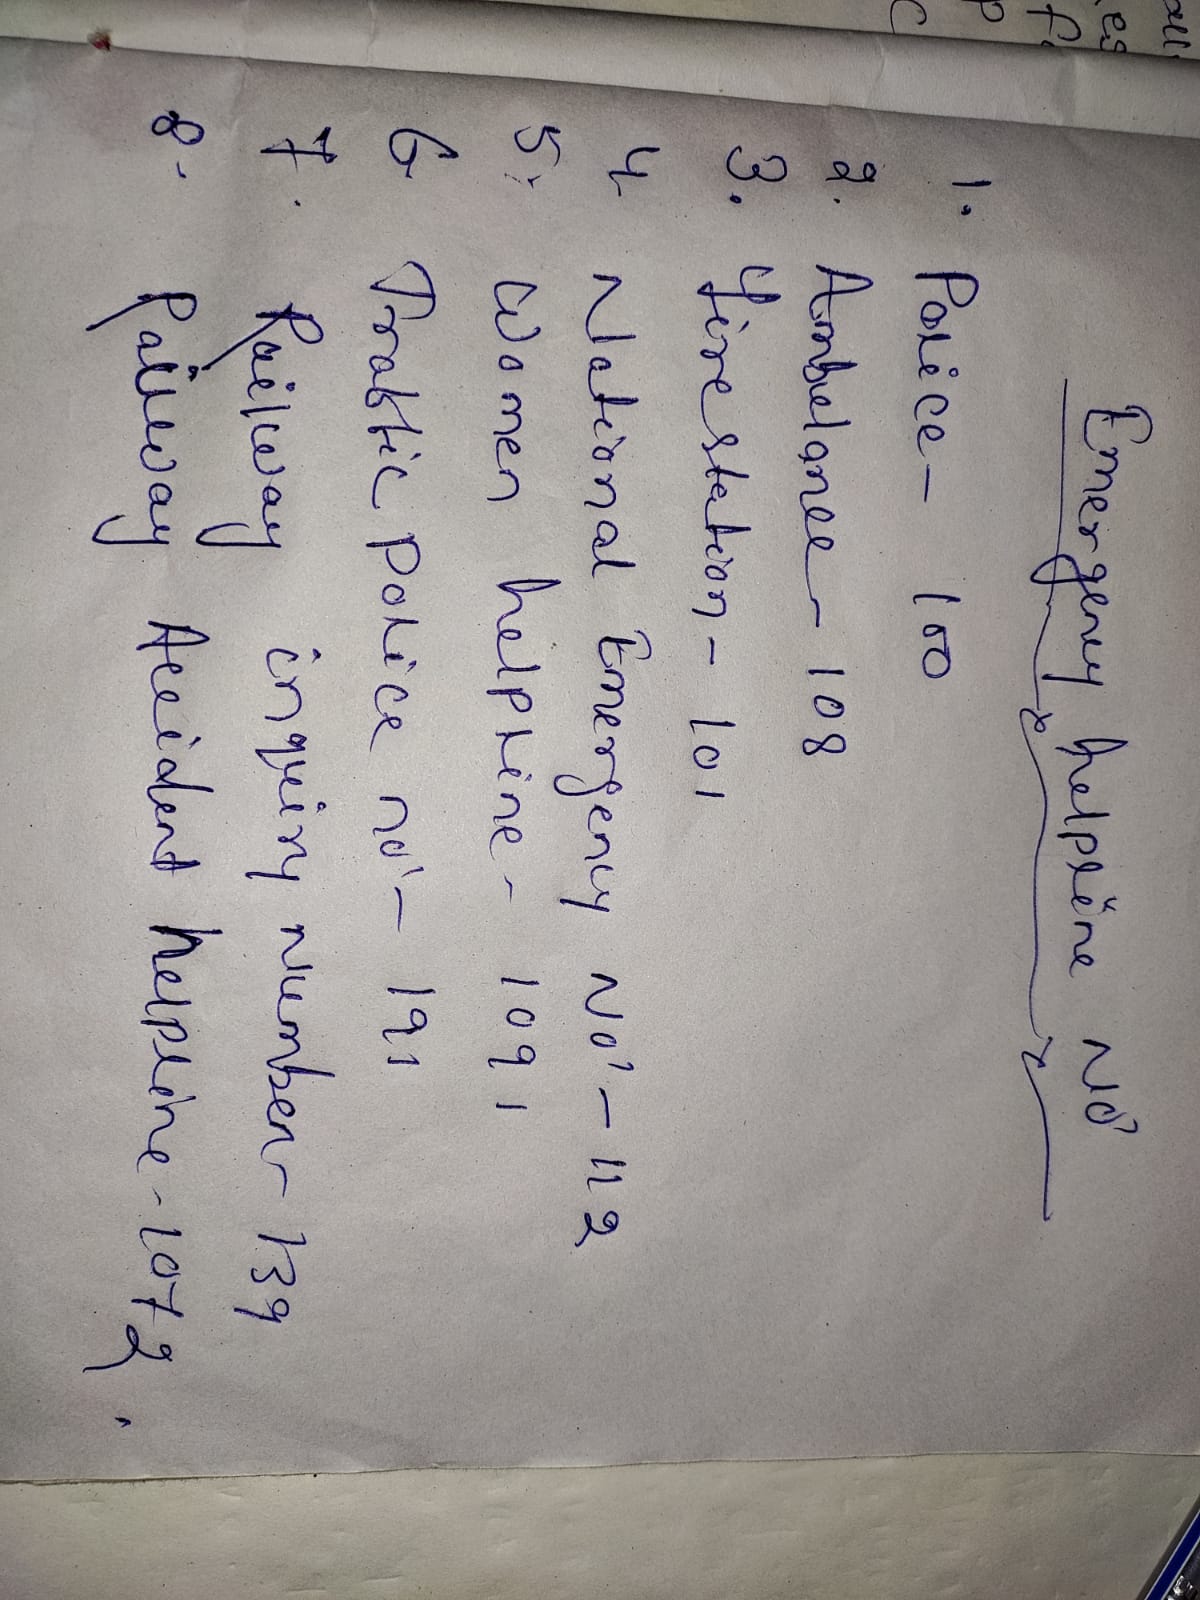 Emergency helpline NO
1. Police - 100
2. Ambulance - 108
3. Firestation - 101
4 National Emergency NO - 112
5. Women helpline - 1091
6 Trabtic police no - 191
7. Railway inquiry number - 139
8. Railway Accident helpline - 1072.